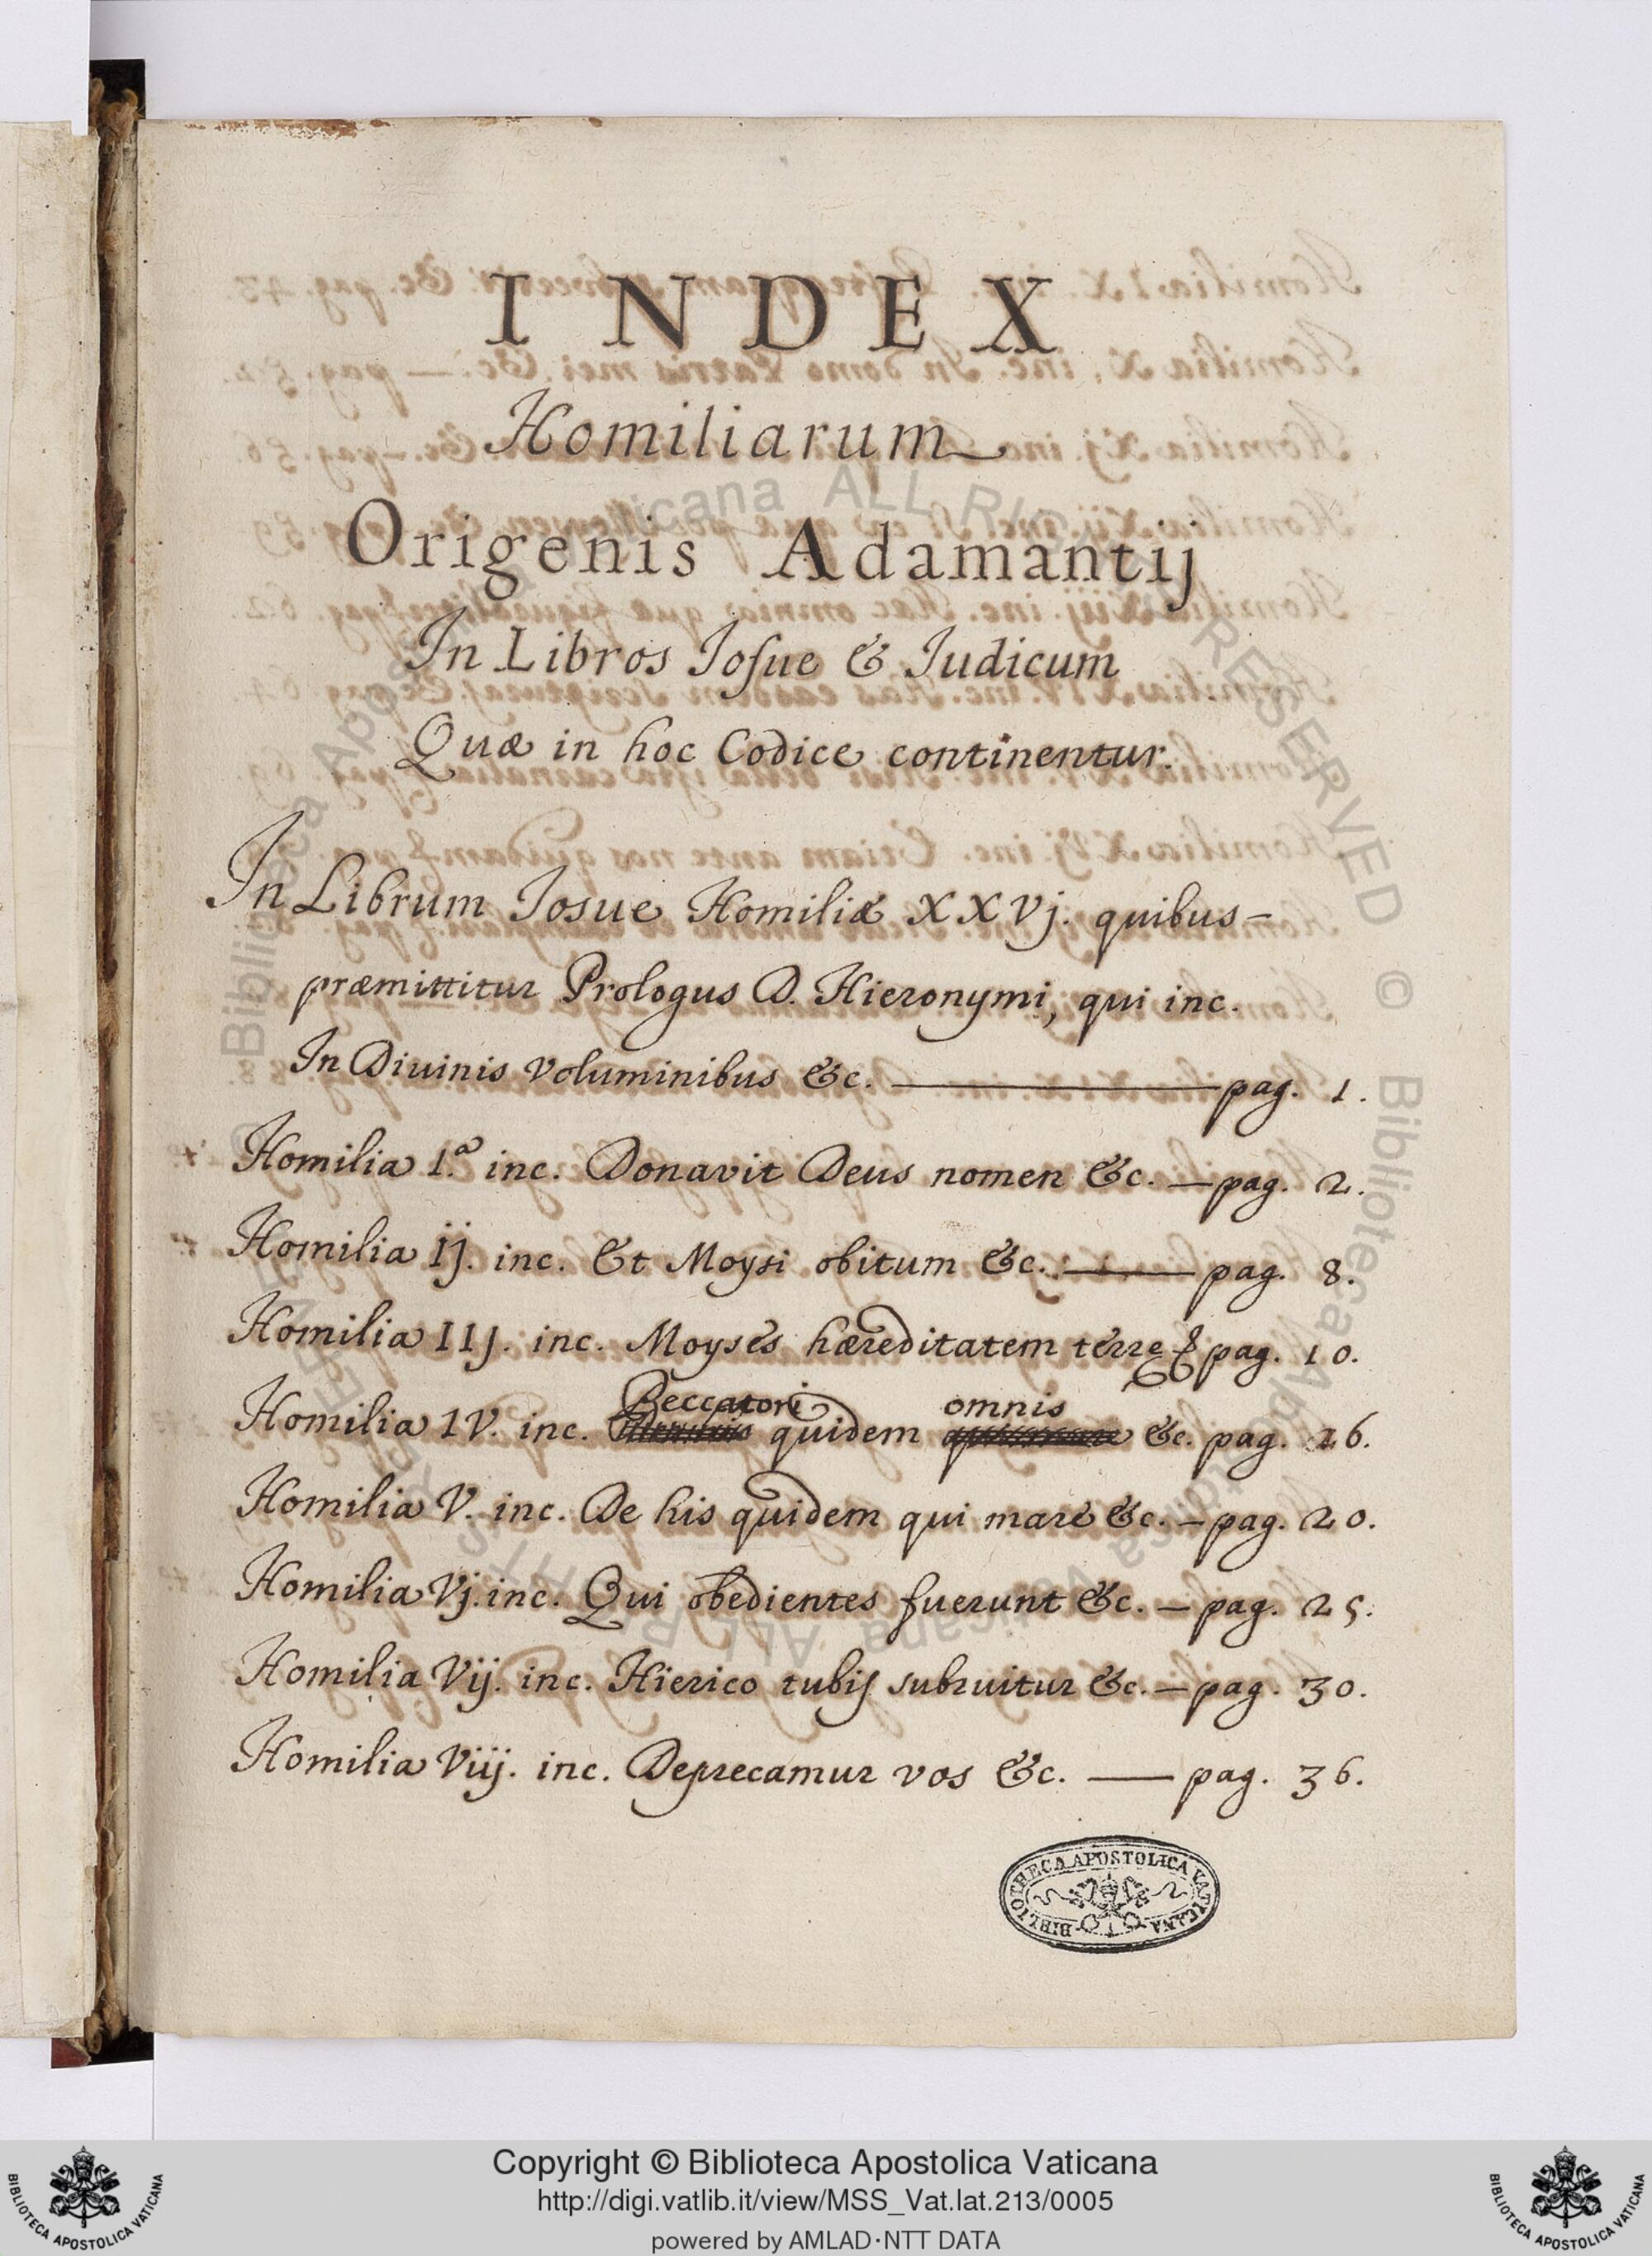 INDEX
Homiliarum
Origenis Adamantij
In Libros Iosue & Iudicum
Quæ in hoc Codice continentur.
In Librum Iosue Homiliæ XXVj. quibus-
præmittitur Prologus D. Hieronymi, qui inc.
In Diuinis voluminibus &c. — pag. 1.
Homilia 1.ª inc. Donavit Deus nomen &c. — pag. 2.
Homilia IJ. inc. Et Moysi obitum &c. — pag. 8.
Homilia IIJ. inc. Moyses hæreditatem terre & pag. 10.
Homilia IV. inc. Peccatori quidem omnis &c. pag. 16.
Homilia V. inc. De his quidem qui mare &c. — pag. 20.
Homilia Vj. inc. Qui obedientes fuerunt &c. — pag. 25.
Homilia Vij. inc. Hierico tubis subruitur &c. — pag. 30.
Homilia Viij. inc. Deprecamur vos &c. — pag. 36.
BIBLIOTHECA APOSTOLICA VATICANA
Copyright © Biblioteca Apostolica Vaticana
http://digi.vatlib.it/view/MSS_Vat.lat.213/0005
powered by AMLAD·NTT DATA
BIBLIOTECA APOSTOLICA VATICANA
BIBLIOTECA APOSTOLICA VATICANA